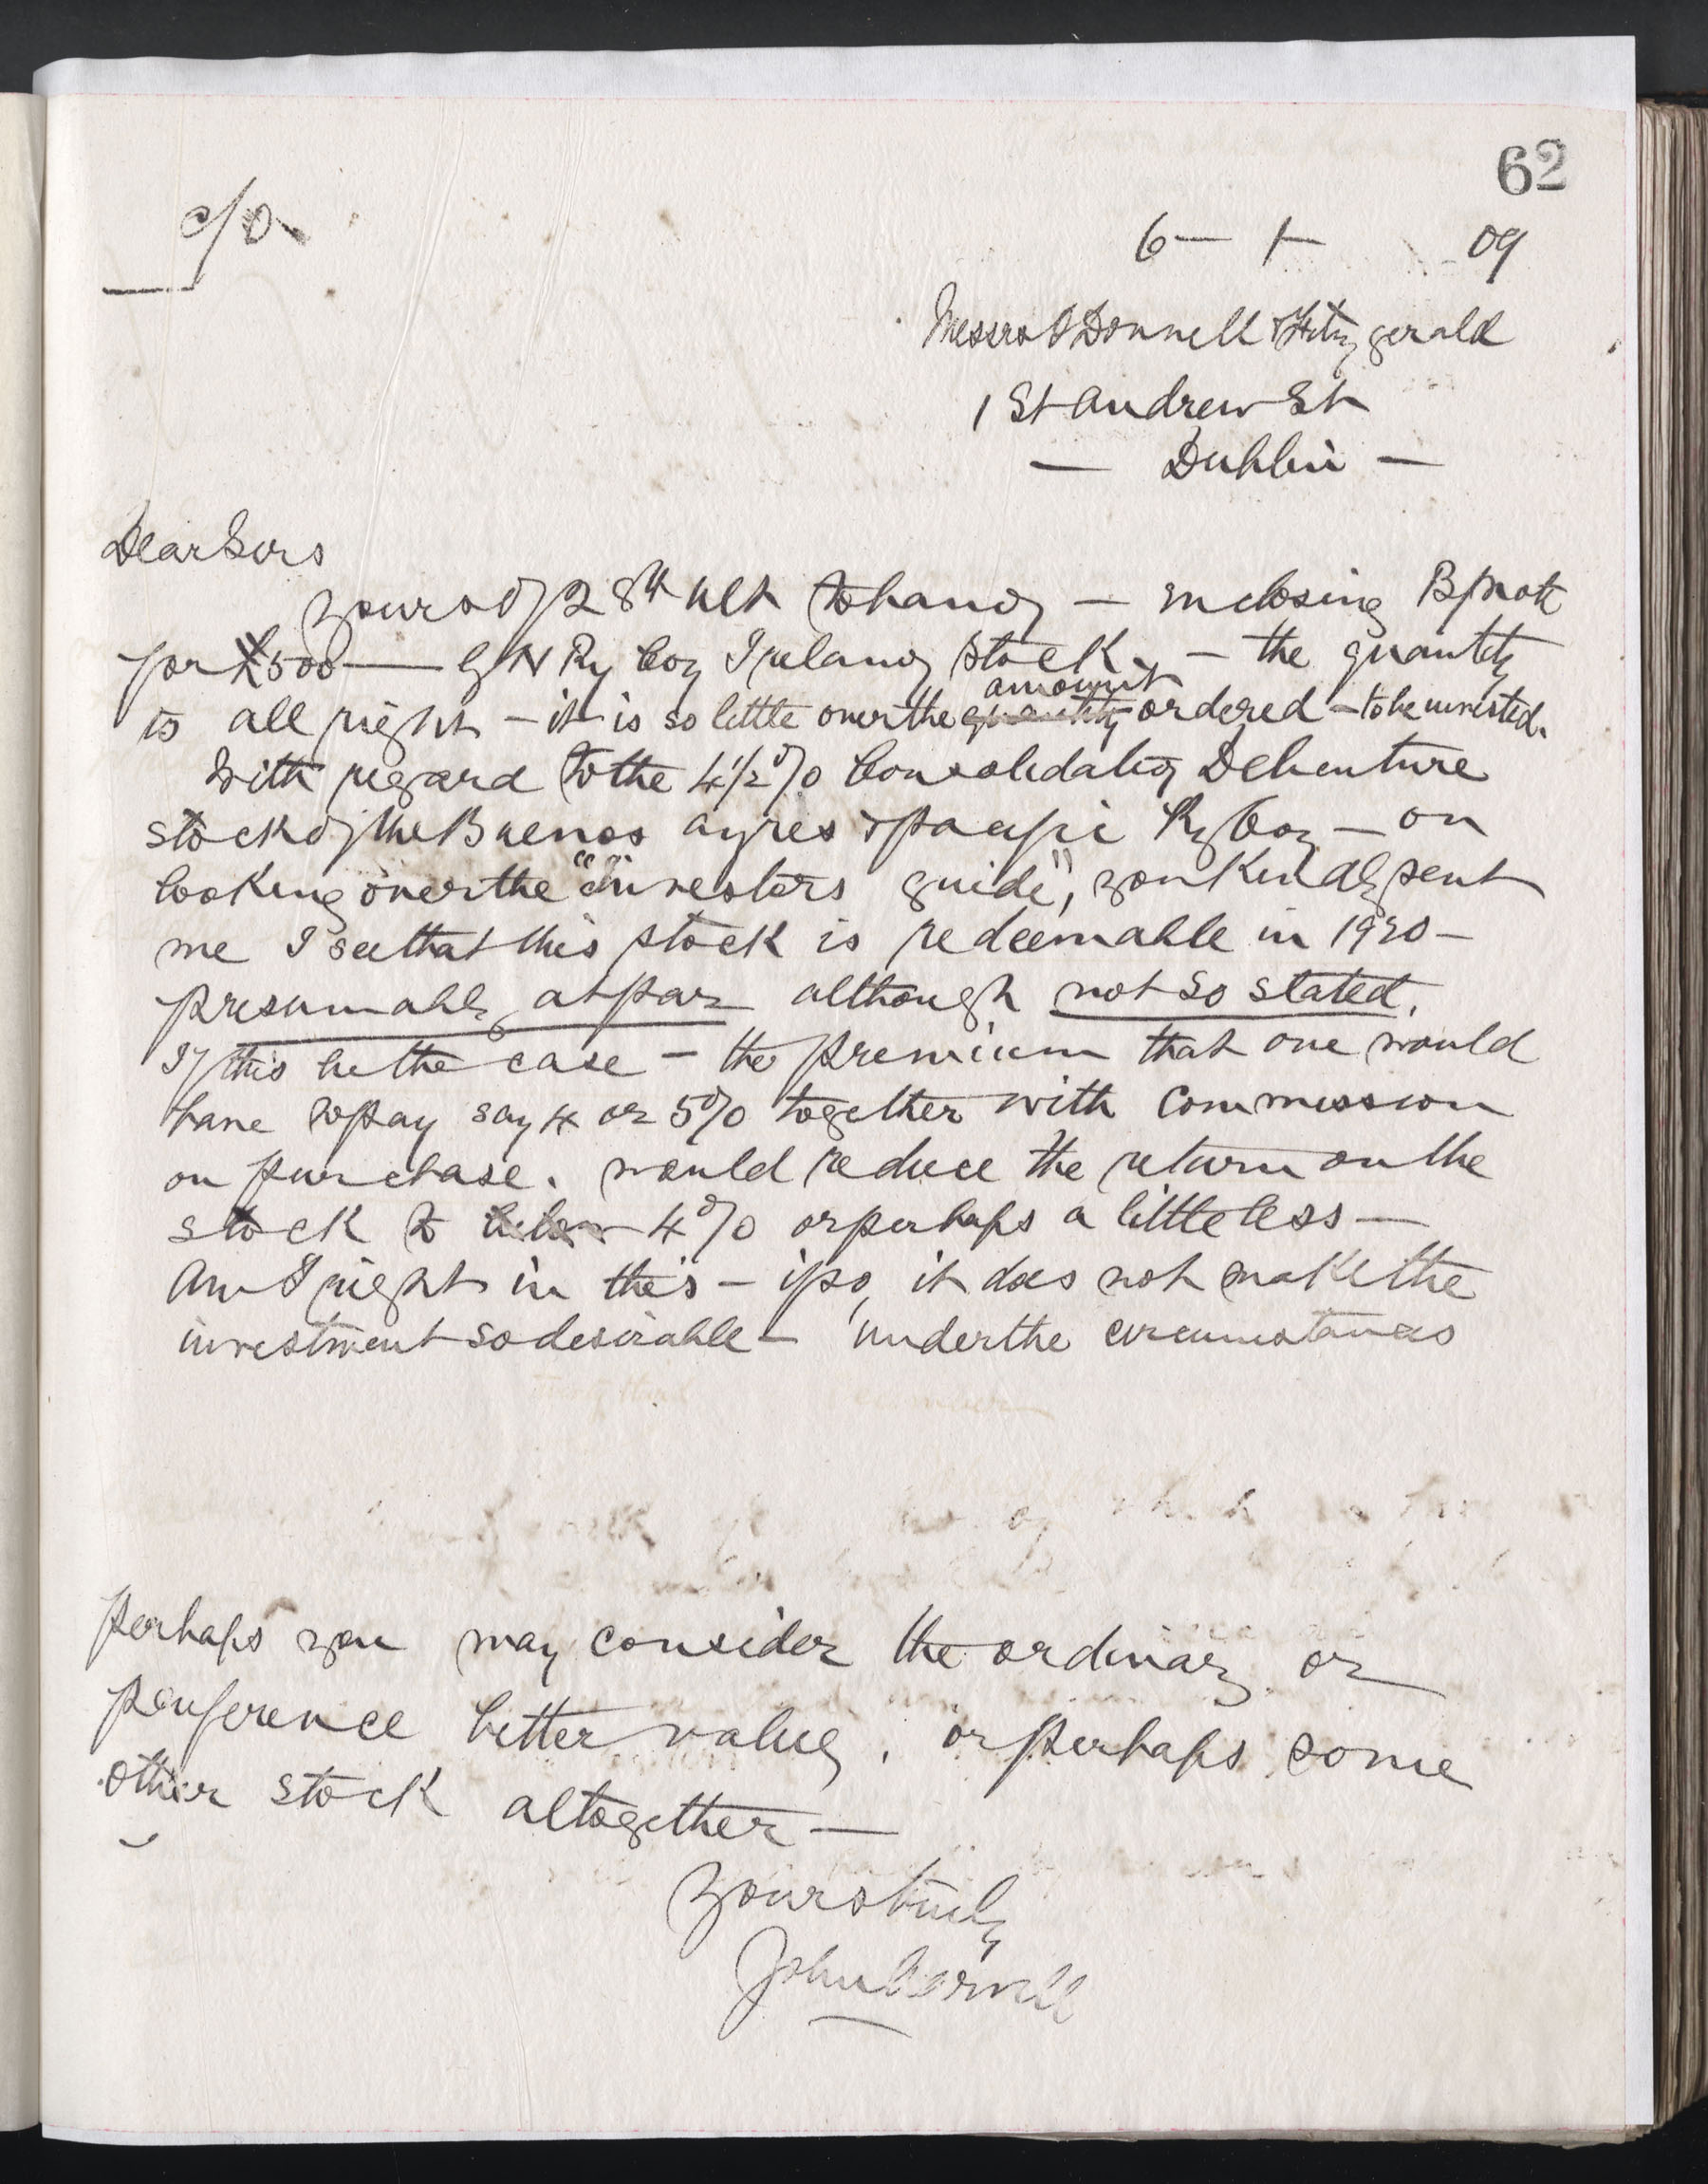 62
c/o
6 — 1 — 09
Messrs O'Donnell & Fitzgerald
1 St Andrew St
— Dublin —
Dear Sirs
Yours of 28th ult to hand — enclosing B/note
for £500 — G N Ry Coy Ireland stock, — the quantity
is all right — it is so little over the quantity amount ordered — to be invested.
With regard to the 4½% Consolidated Debenture
stock of the Buenos Ayres & Pacific Ry Coy — on
looking over the "investors guide", you kindly sent
me I see that this stock is redeemable in 1930 —
presumably at par although not so stated.
If this be the case — the premium that one would
have to pay say 4 or 5% together with commission
on purchase. would reduce the return on the
stock to below 4% or perhaps a little less —
Am I right in this — if so, it does not make the
investment so desirable — under the circumstances
Perhaps you may consider the ordinary or
preference better value, or perhaps some
other stock altogether —
Yours truly
John